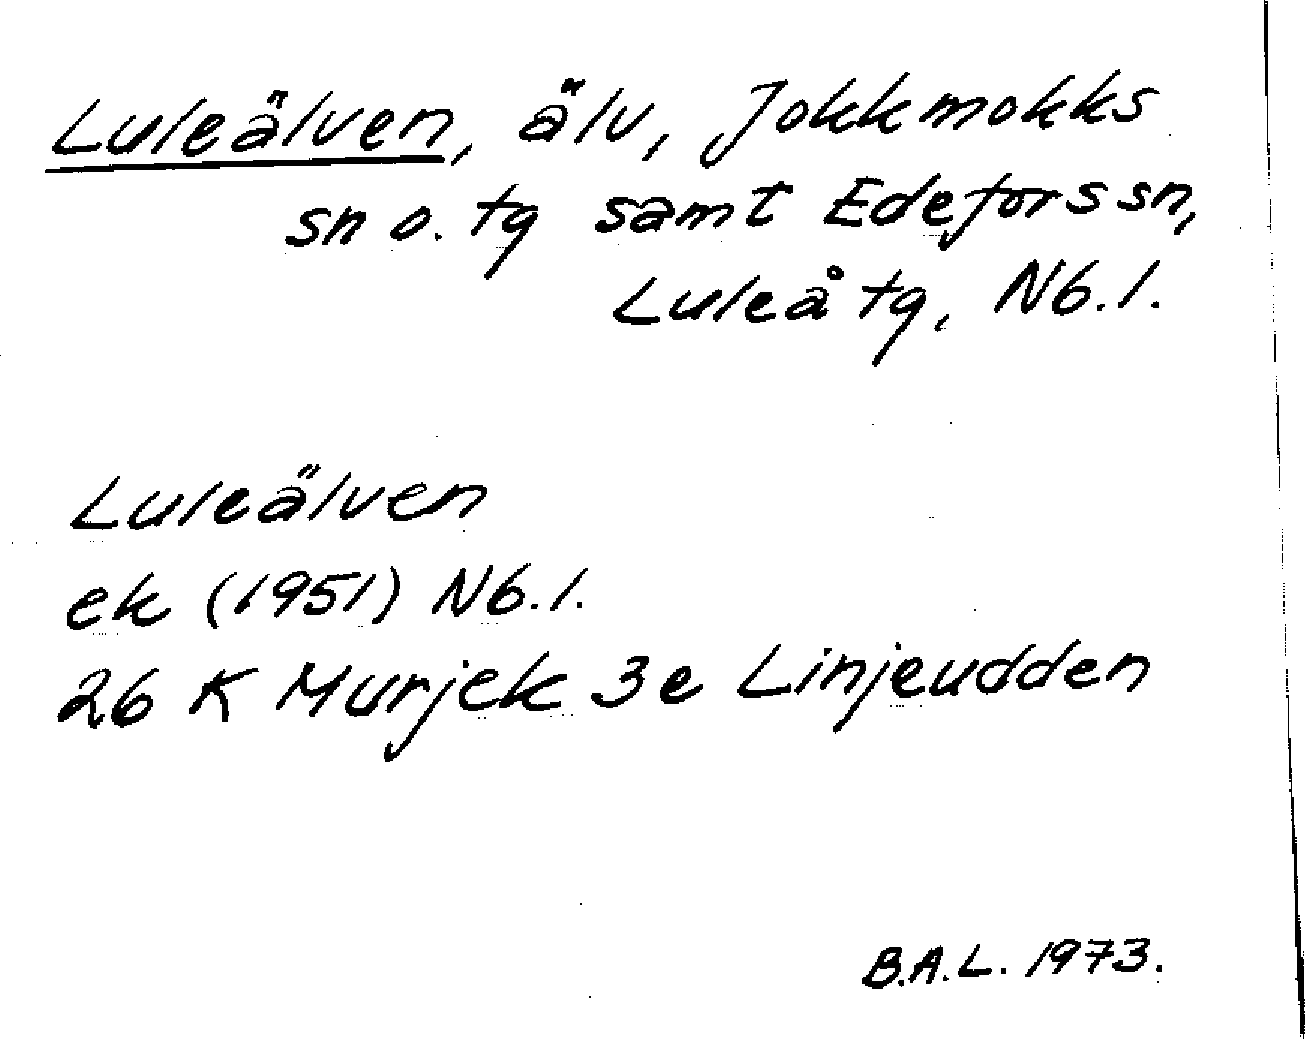 Luleälven, älv, Jokkmokks
sn o. tg samt Edefors sn,
Luleå tg, Nb.l.
Luleälven
ek (1951) Nb.l.
26 K Murjek 3e Linjeudden
B.A.L. 1973.